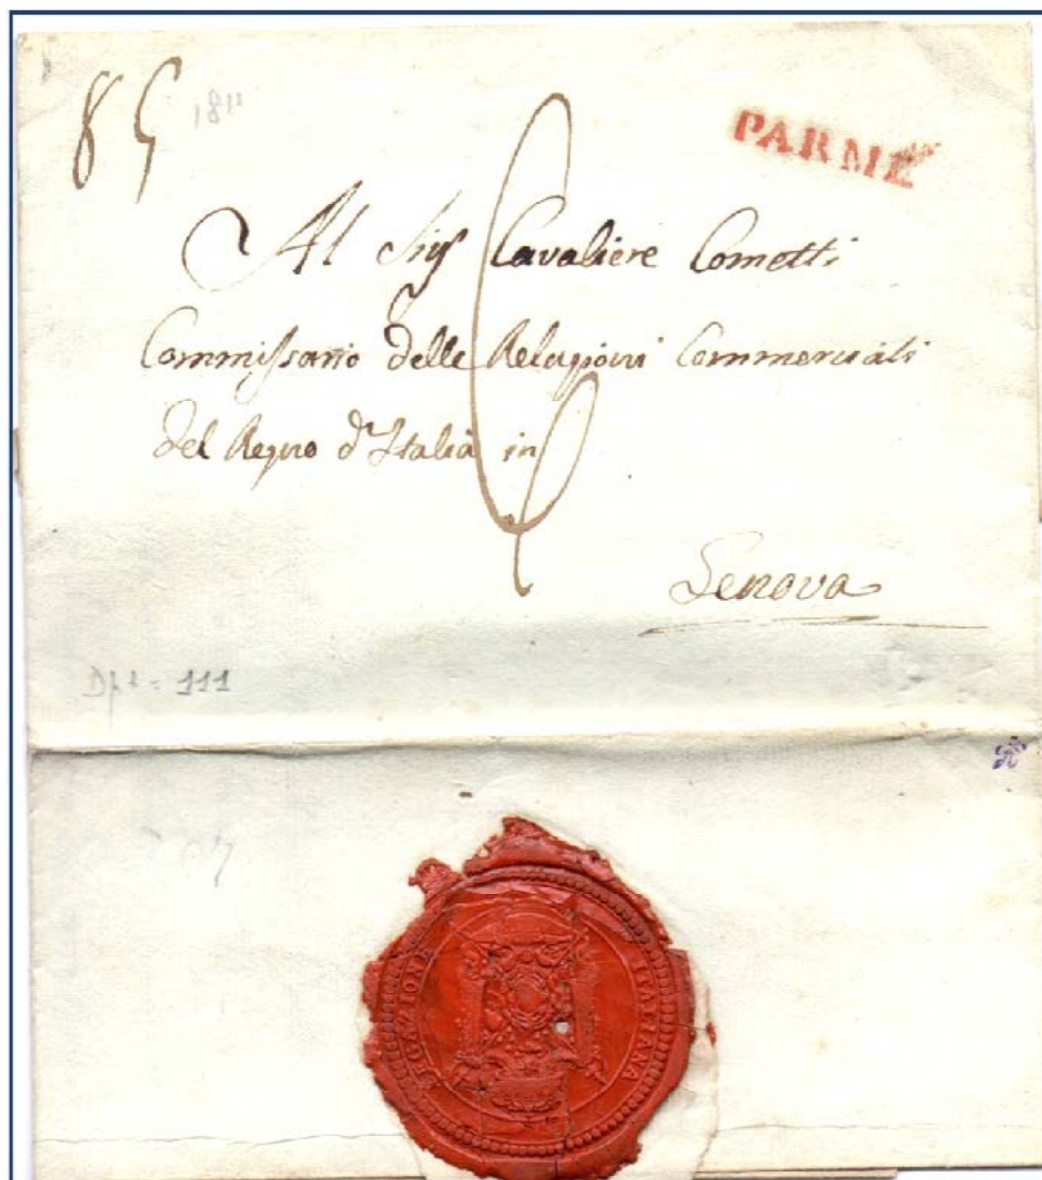 85
1811
PARME
Al Sig Cavaliere Cometti
Commissario delle Relazioni Commerciali
del Regno d'Italia in
Genova
Dpt = 111
LEGAZIONE ITALIANA